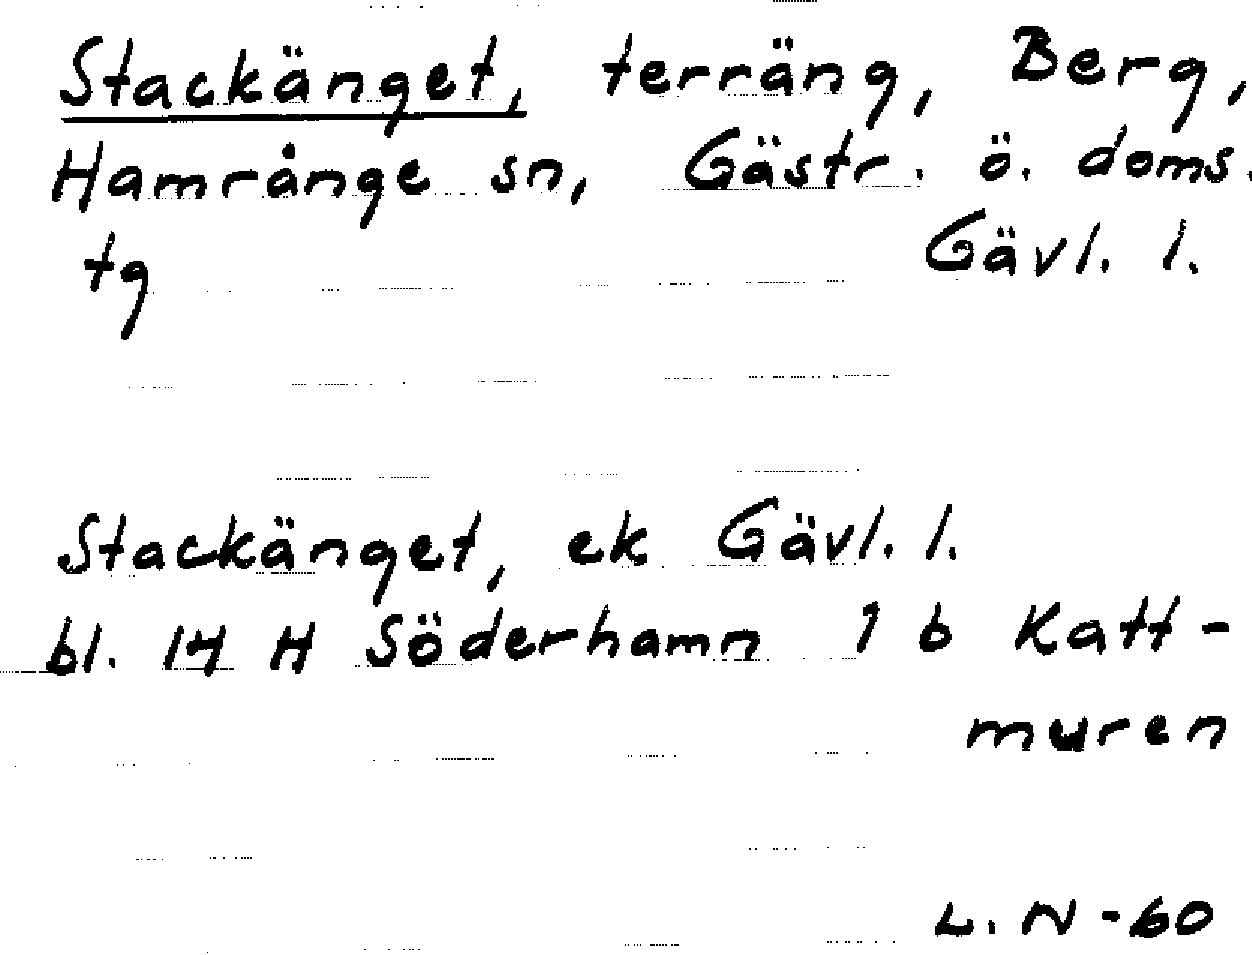 Stackänget, terräng, Berg,
Hamrånge sn, Gästr. ö. doms.
tg Gävl. l.
Stackänget, ek Gävl. l.
bl. 14 H Söderhamn 1 b Katt-
muren
L. N -60